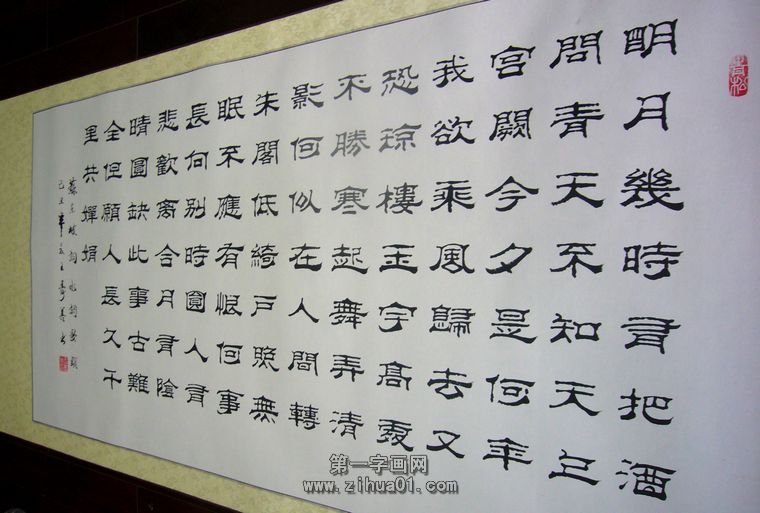 明月幾時有把酒
問青天不知天上
宮闕今夕是何年
我欲乘風歸去又
恐琼樓玉宇高處
不勝寒起舞弄清
影何似在人間轉
朱閣低綺戶照無
眠不應有恨何事
長向别時圓人有
悲歡离合月有陰
晴圓缺此事古難
全但願人長久千
里共嬋娟
蘇東坡詞水調歌頭
己丑年
第一字画网
www.zihua01.com